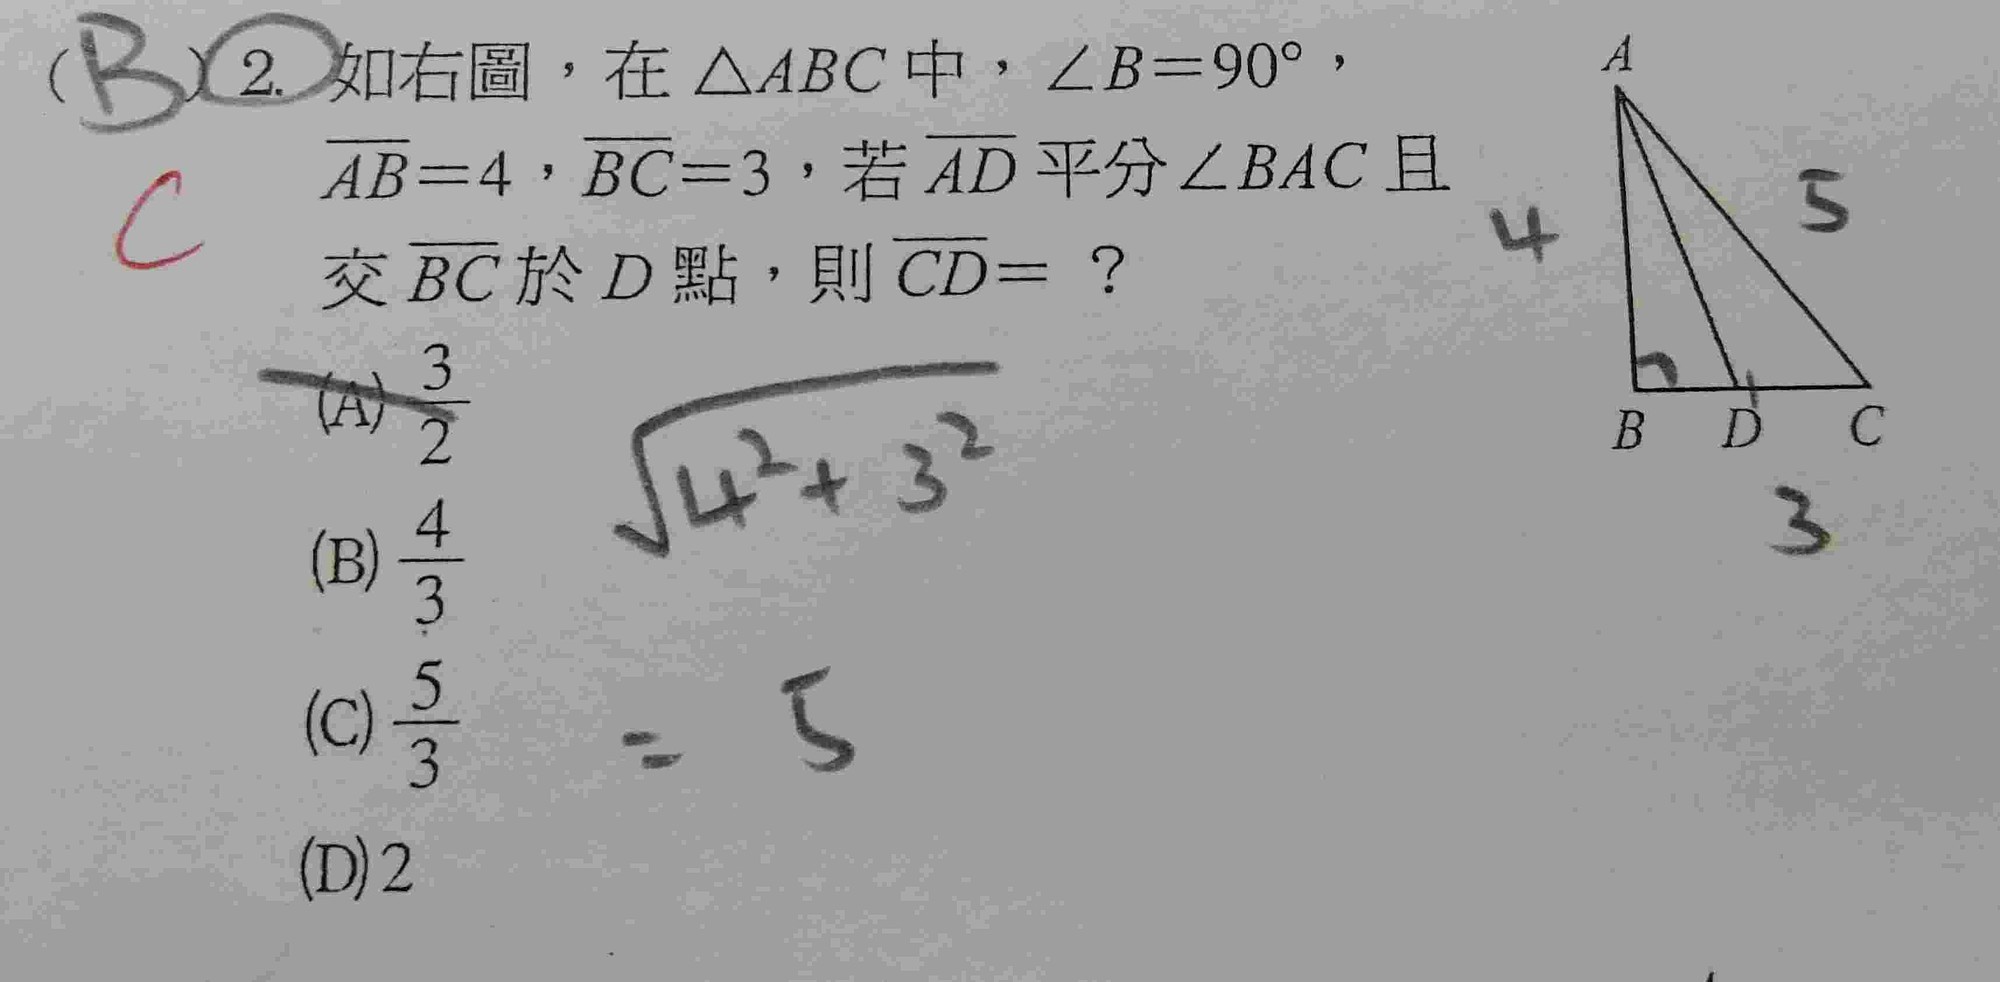 (B) 2. 如右圖，在 △ABC 中，∠B=90°，
AB=4，BC=3，若 AD 平分∠BAC 且
C
交 BC 於 D 點，則 CD= ？
(A) 3/2
(B) 4/3
(C) 5/3
(D) 2
√4²+3²
= 5
A
4
5
B D C
3